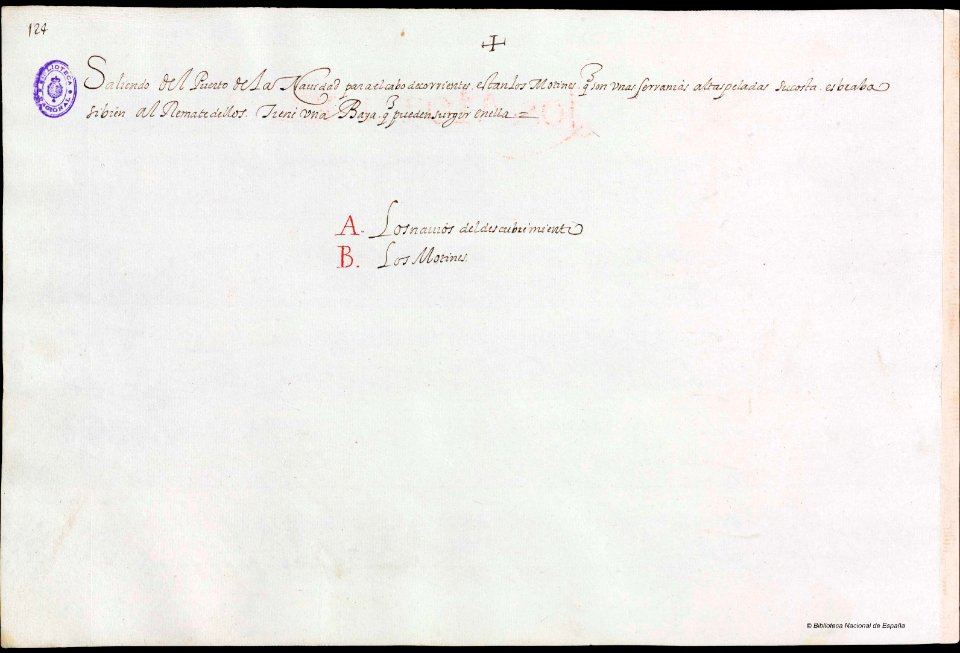 124
BIBLIOTECA NACIONAL
Saliendo del Puerto de la Nauidad para el cabo de corrientes, estan los Motines q̃ son vnas serranias altas peladas su costa es braba
si bien al Remate dellos. Tiene vna Baya. q̃ pueden surgir en ella. =
A. Los nauios del descubrimiento
B. Los Motines.
© Biblioteca Nacional de España